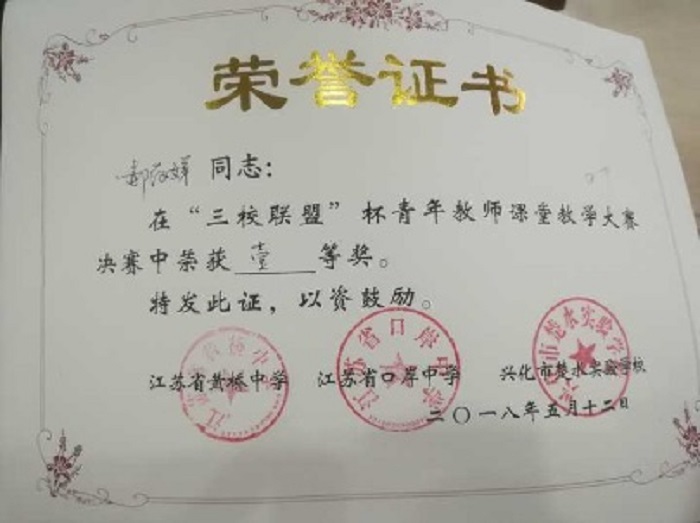 荣誉证书
同志：
在“三校联盟”杯青年教师课堂教学大赛
决赛中荣获 壹 等奖。
特发此证，以资鼓励。
江苏省黄桥中学 江苏省口岸中学 兴化市楚水实验学校
二〇一八年五月十二日
江苏省口岸中学
兴化市楚水实验学校